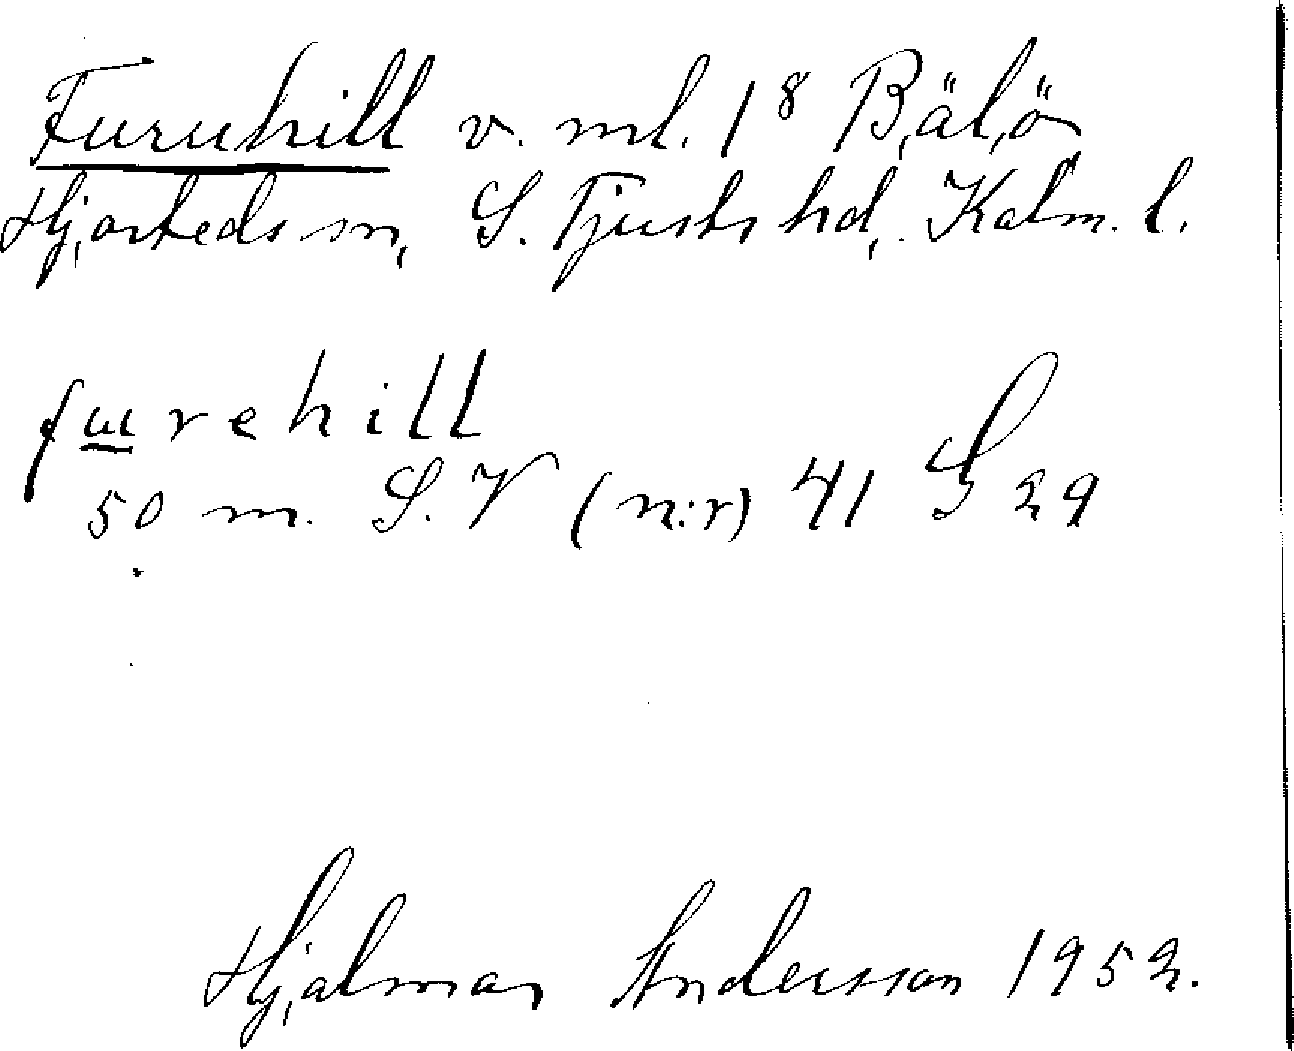 Furuhill v. ml. 1⁸ Bälö
Hjorteds sn, S. Tjusts hd, Kalm. l.
fɯrehill
50 m. S.V (n:r) 41 S 29
Hjalmar Andersson 1952.